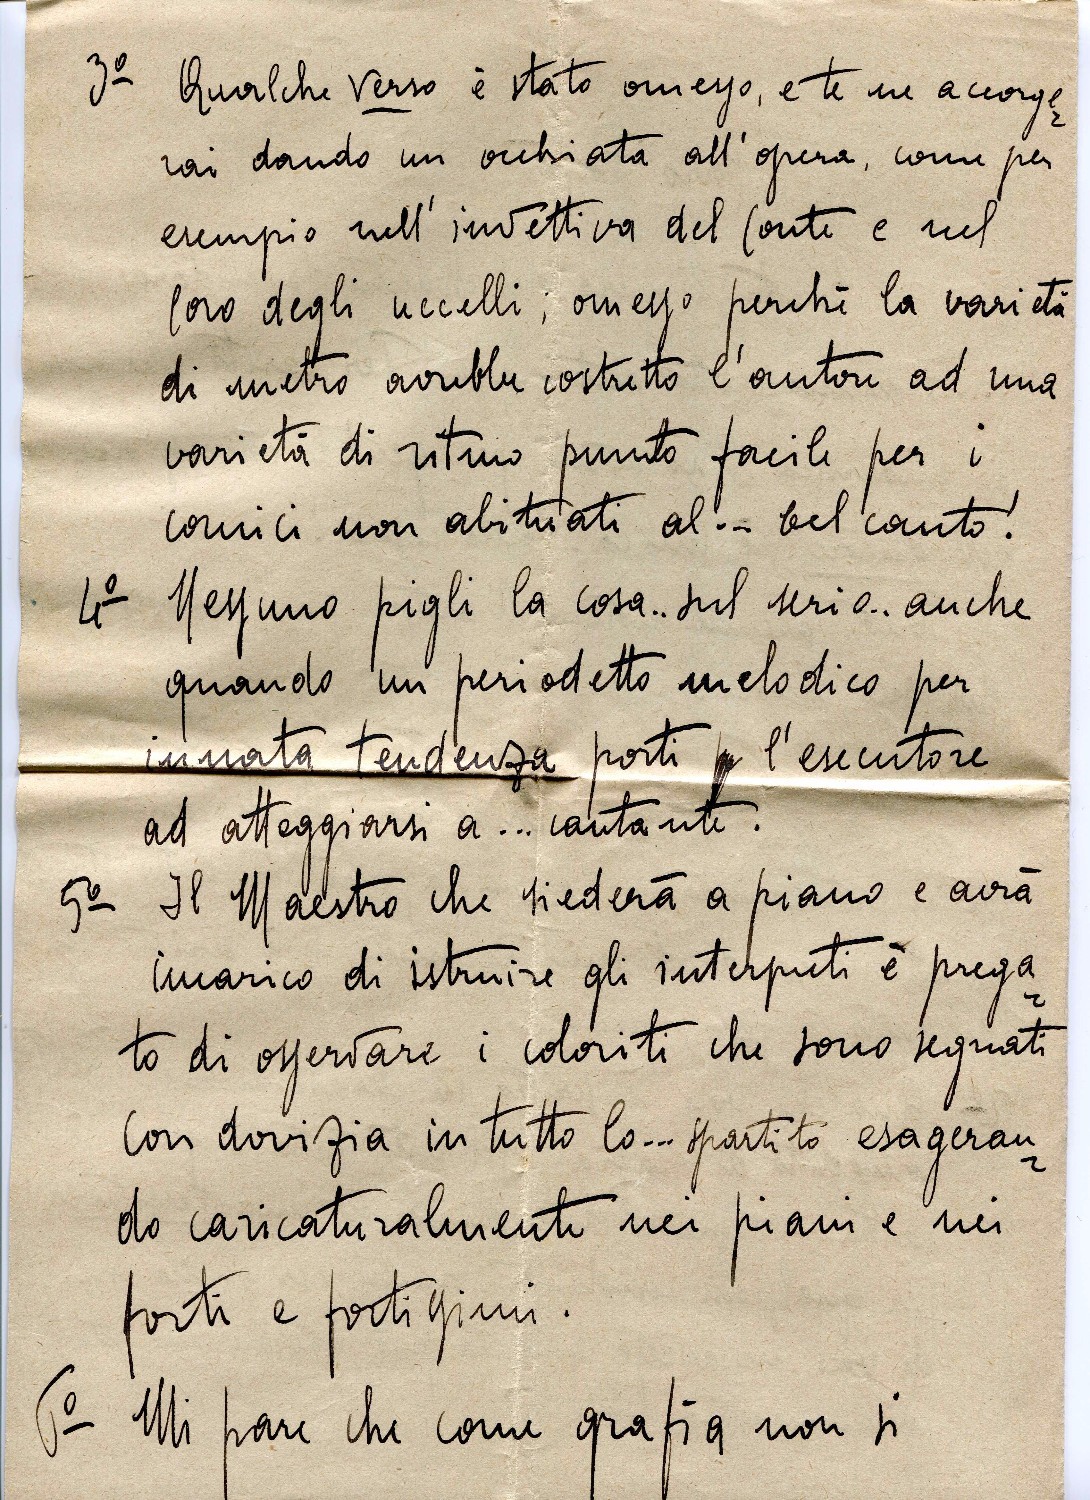 3º Qualche verso è stato omesso, e te ne accorge
rai dando un occhiata all'opera, come per
esempio nell'invettiva del Conte e nel
Coro degli uccelli; omesso perchè la varietà
di metro avrebbe costretto l'autore ad una
varietà di ritmo punto facile per i
comici non abituati al.. bel canto!
4º Nessuno pigli la cosa.. sul serio.. anche
quando un periodetto melodico per
innata tendenza porti l'esecutore
ad atteggiarsi a... cantante.
5º Il Maestro che siederà a piano e avrà
incarico di istruire gli interpreti è prega
to di osservare i coloriti che sono segnati
con dovizia in tutto lo... spartito esageran
do caricaturalmente nei piani e nei
forti e fortissimi.
6º Mi pare che come grafia non si